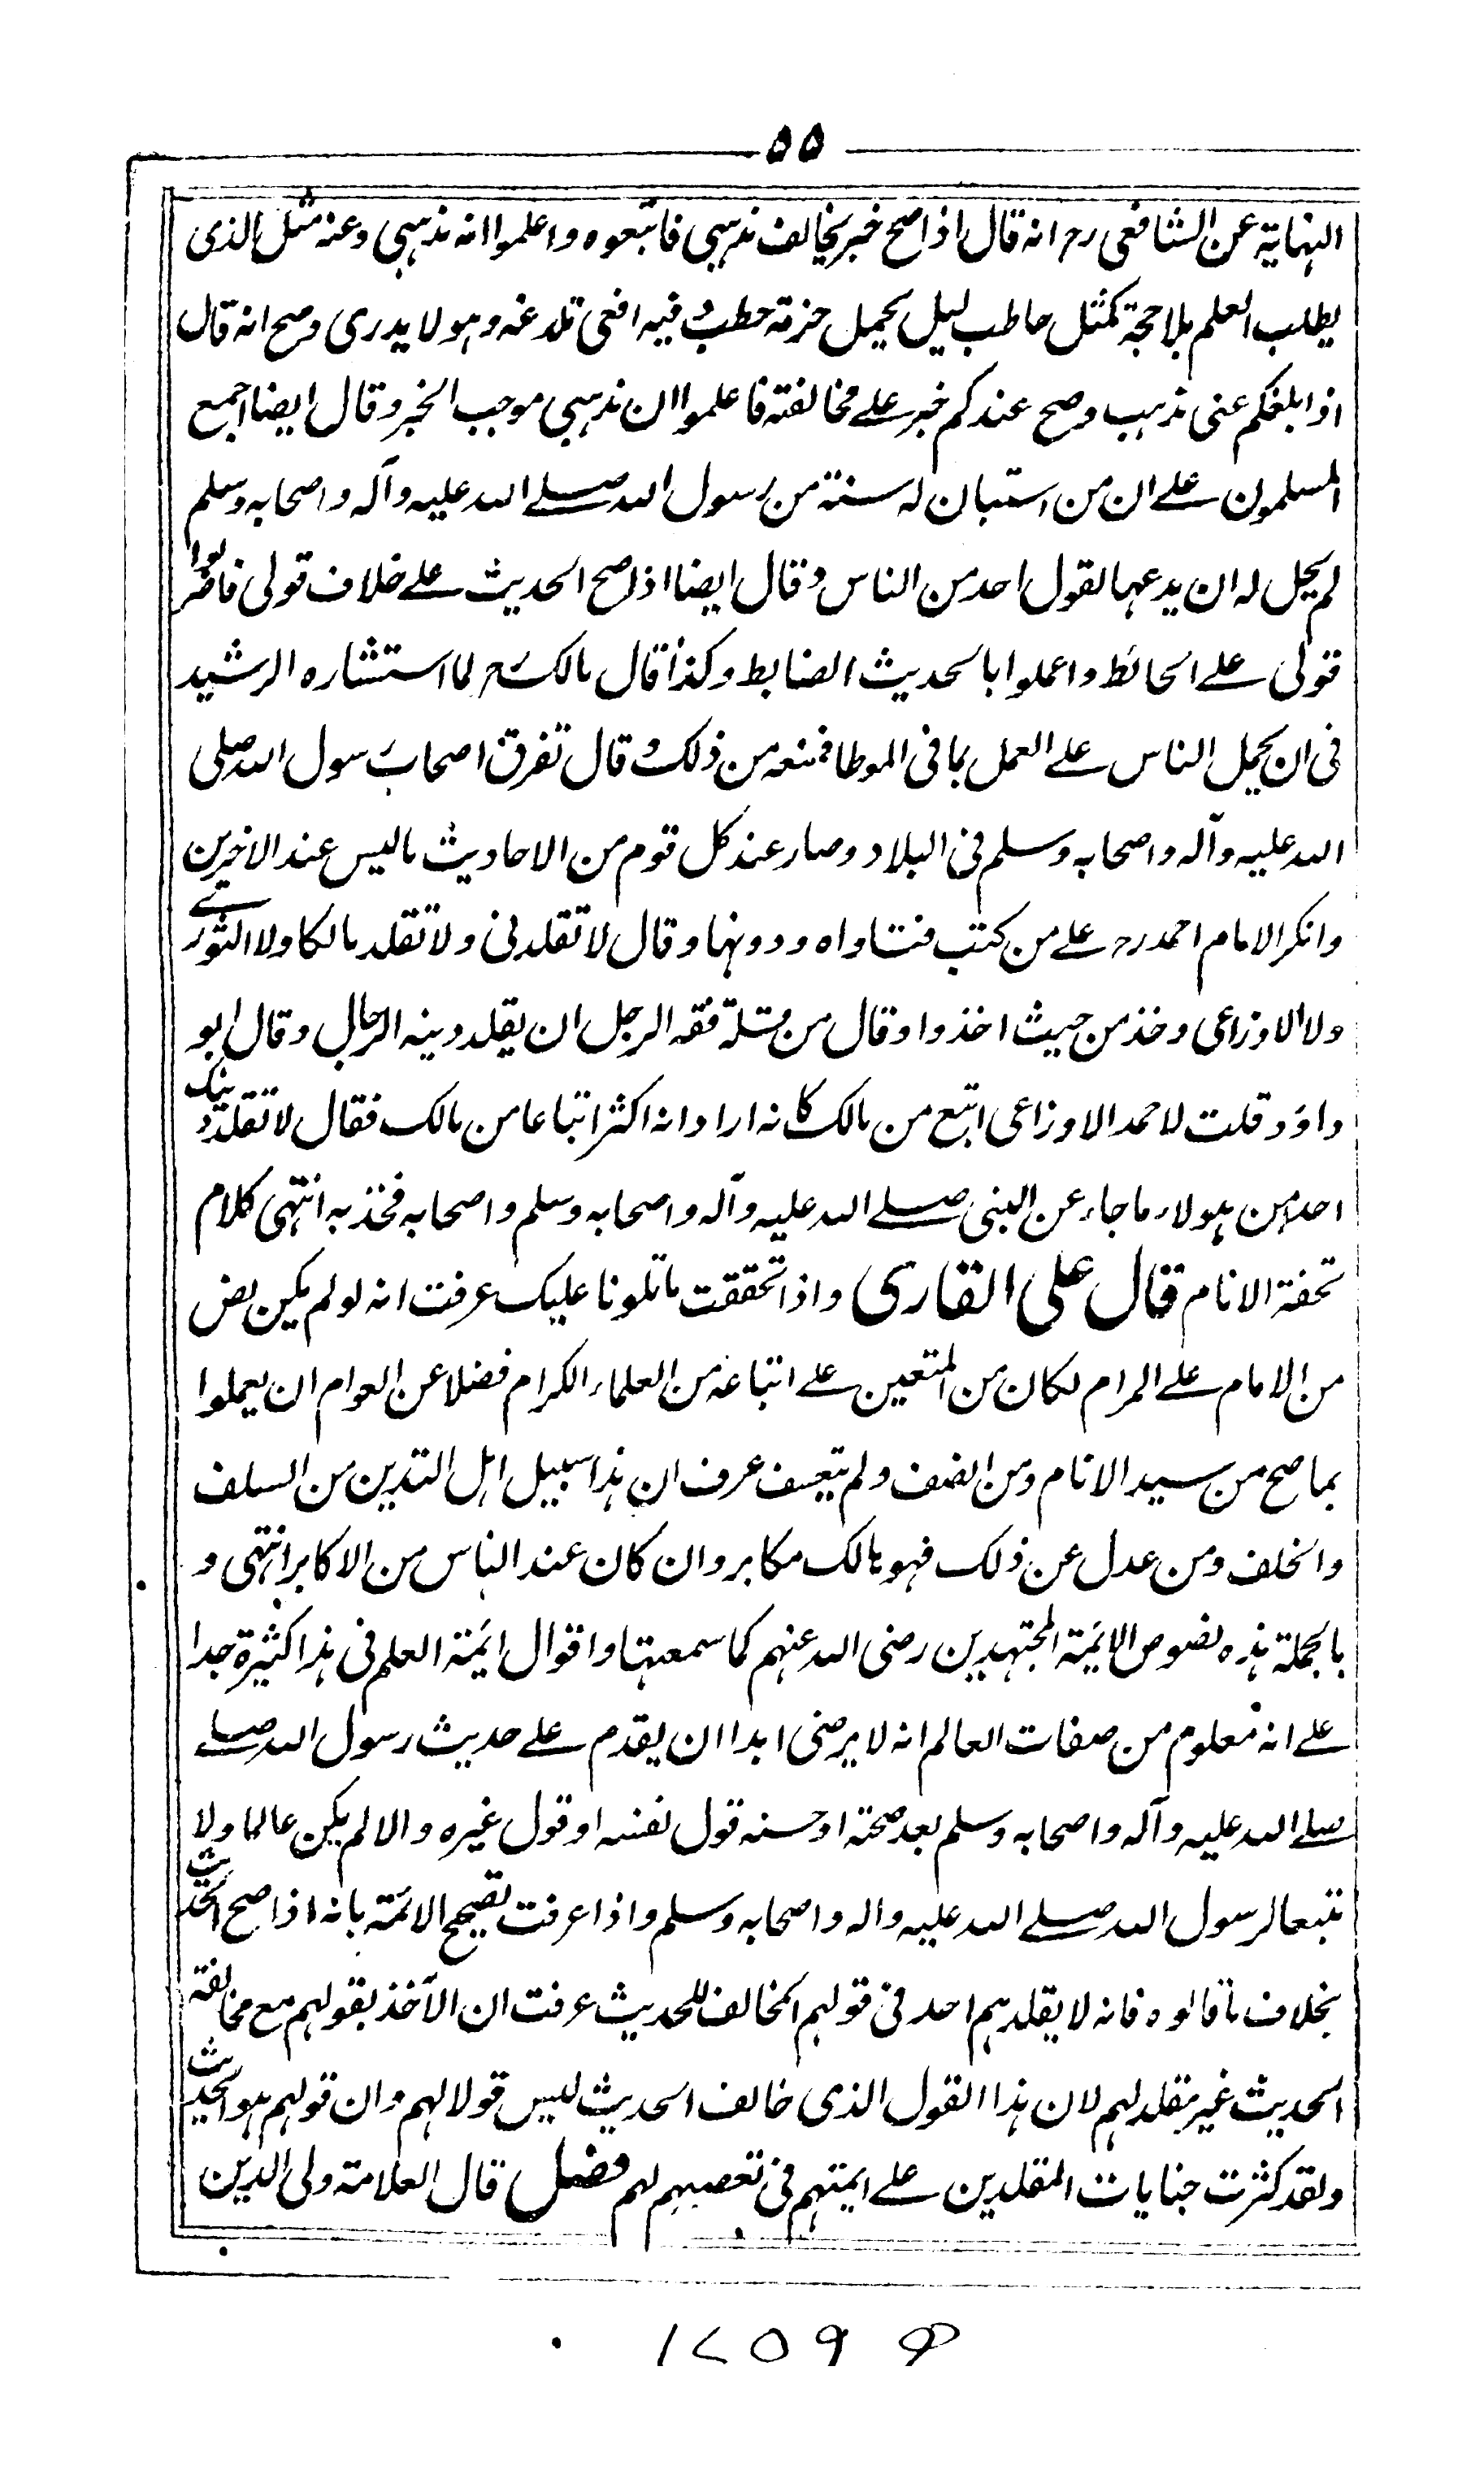 ۵۵
النهایة عن الشافعی رح انه قال اذا صح خبر یخالف مذهبی فاتبعوه واعلموا انه مذهبی وعنه مثل الذی
یطلب العلم بلا حجة کمثل حاطب لیل یحمل حزمة حطب وفیه افعی تلدغه وهو لا یدری وصح انه قال
اذا بلغکم عنی مذهب وصح عندکم خبر علے مخالفته فاعلموا ان مذهبی موجب الخبر وقال ایضا اجمع
المسلمون علے ان من استبان له سنة من رسول الله صلے الله علیه وآله واصحابه وسلم
لم یحل له ان یدعها لقول احد من الناس وقال ایضا اذا صح الحدیث علے خلاف قولی فاضربوا
قولی علے الحائط واعملوا بالحدیث الضابط وکذا قال مالک رح لما استشاره الرشید
فی ان یحمل الناس علے العمل بما فی الموطا فمنعه من ذلک وقال تفرق اصحاب رسول الله صلی
الله علیه وآله واصحابه وسلم فی البلاد وصار عند کل قوم من الاحادیث ما لیس عند الآخرین
وانکر الامام احمد رح علے من کتب فتاواه ودونها وقال لا تقلدنی ولا تقلد مالکا ولا الثورے
ولا الاوزاعی وخذ من حیث اخذوا وقال من قلة فقه الرجل ان یقلد دینه الرجال وقال ابو
داؤد قلت لاحمد الاوزاعی اتبع من مالک کانه اراد انه اکثر اتباعا من مالک فقال لا تقلد دینک
احدا من هولاء ما جاء عن النبی صلے الله علیه وآله واصحابه وسلم واصحابه فخذ به انتهی کلام
تحفة الانام قال علی القاری واذا تحققت ما تلونا علیک عرفت انه لو لم یکن نص
من الامام علے المرام لکان من المتعین علے اتباعه من العلماء الکرام فضلا عن العوام ان یعملوا
بما صح من سید الانام ومن انصف ولم یتعسف عرف ان هذا سبیل اهل التدین من السلف
والخلف ومن عدل عن ذلک فهو هالک مکابر وان کان عند الناس من الاکابر انتهی و
بالجملة هذه نصوص الائمة المجتهدین رضی الله عنهم کما سمعتها واقوال ائمة العلم فی هذا کثیرة جدا
علے انه معلوم من صفات العالم انه لا یرضی ابدا ان یقدم علے حدیث رسول الله صلے
صلے الله علیه وآله واصحابه وسلم بعد صحته او حسنه قول نفسه او قول غیره والا لم یکن عالما ولا
متبعا لرسول الله صلے الله علیه واله واصحابه وسلم واذا عرفت تصحیح الائمة بانه اذا صح الحدیث
بخلاف ما قالوه فانه لا یقلدهم احد فی قولهم المخالف للحدیث عرفت ان الآخذ بقولهم مع مخالفة
الحدیث غیر مقلد لهم لان هذا القول الذی خالف الحدیث لیس قولا لهم وان قولهم هو الحدیث
ولقد کثرت جنایات المقلدین علے ایمتهم فی تعصبهم لهم فصل قال العلامة ولی الدین